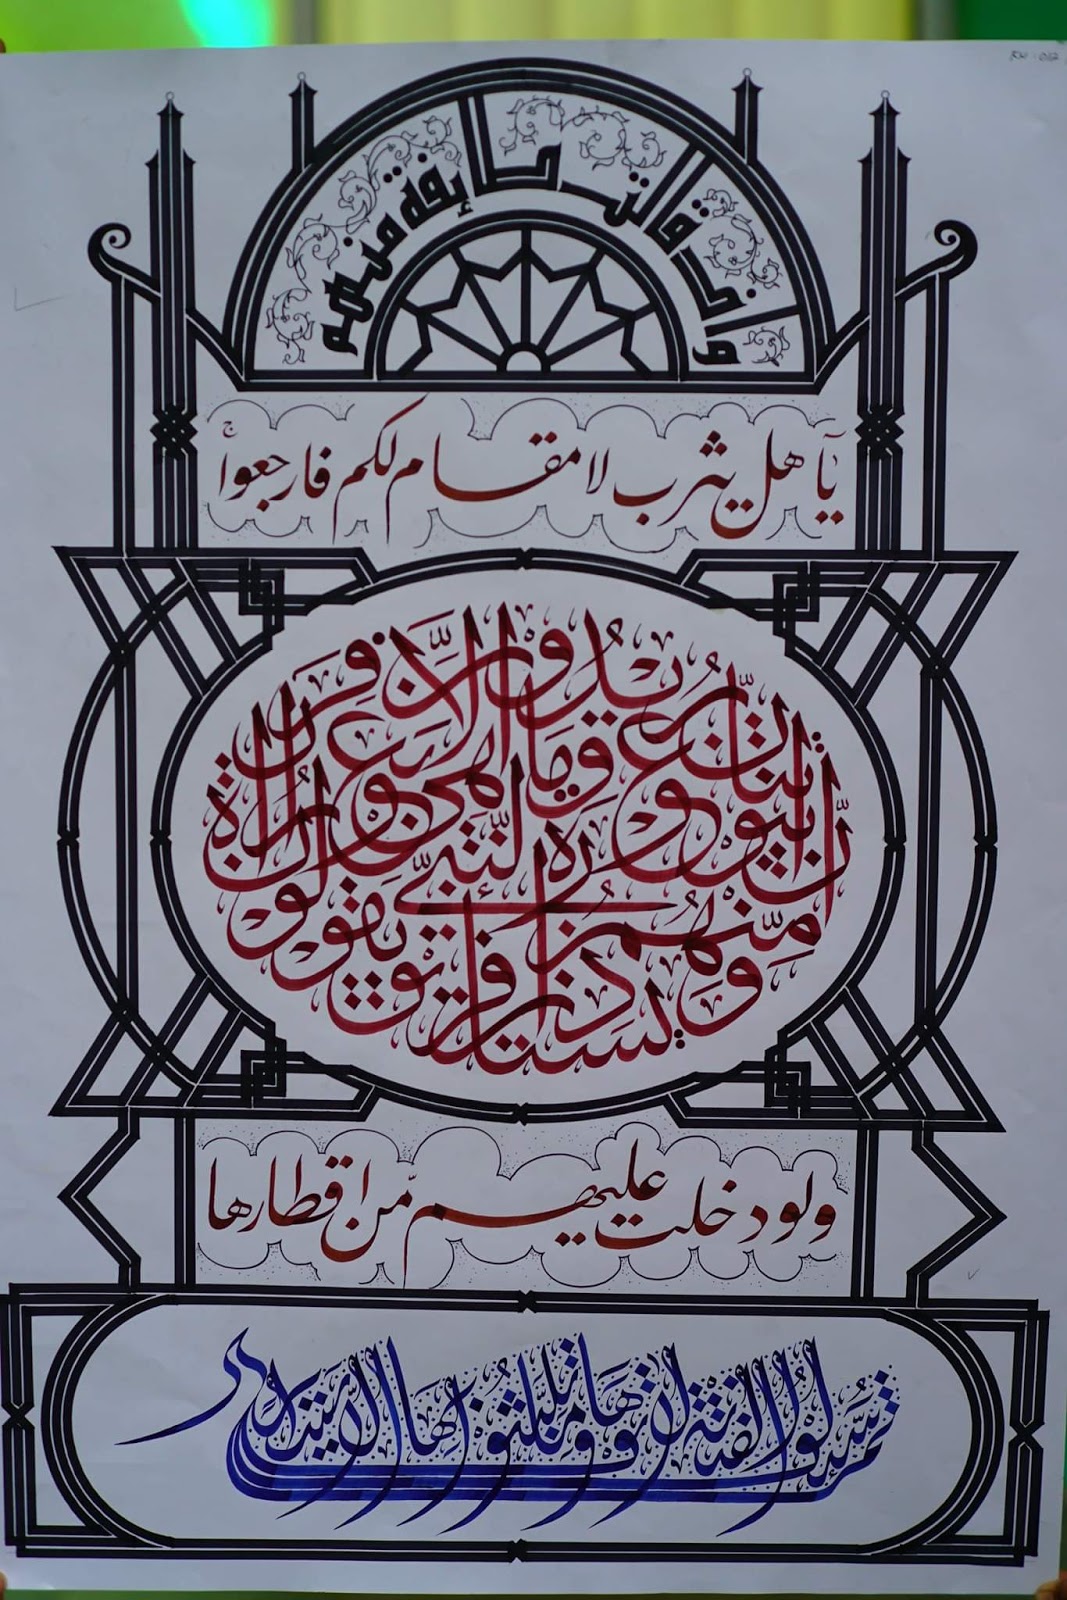 واذ قالت طاىفة منهم
يٰٓاهل يثرب لا مقام لكم فارجعواۚ
وَيَسْتَأْذِنُ فَرِيْقٌ مِّنْهُمُ النَّبِيَّ يَقُوْلُوْنَ اِنَّ بُيُوْتَنَا عَوْرَةٌ وَمَا هِيَ بِعَوْرَةٍ اِنْ يُّرِيْدُوْنَ اِلَّا فِرَارًا
ولو دخلت عليهم مّن اقطارها
ثُمَّ سُئِلُوا الْفِتْنَةَ لَاٰتَوْهَا وَمَا تَلَبَّثُوْا بِهَا اِلَّا يَسِيْرًا